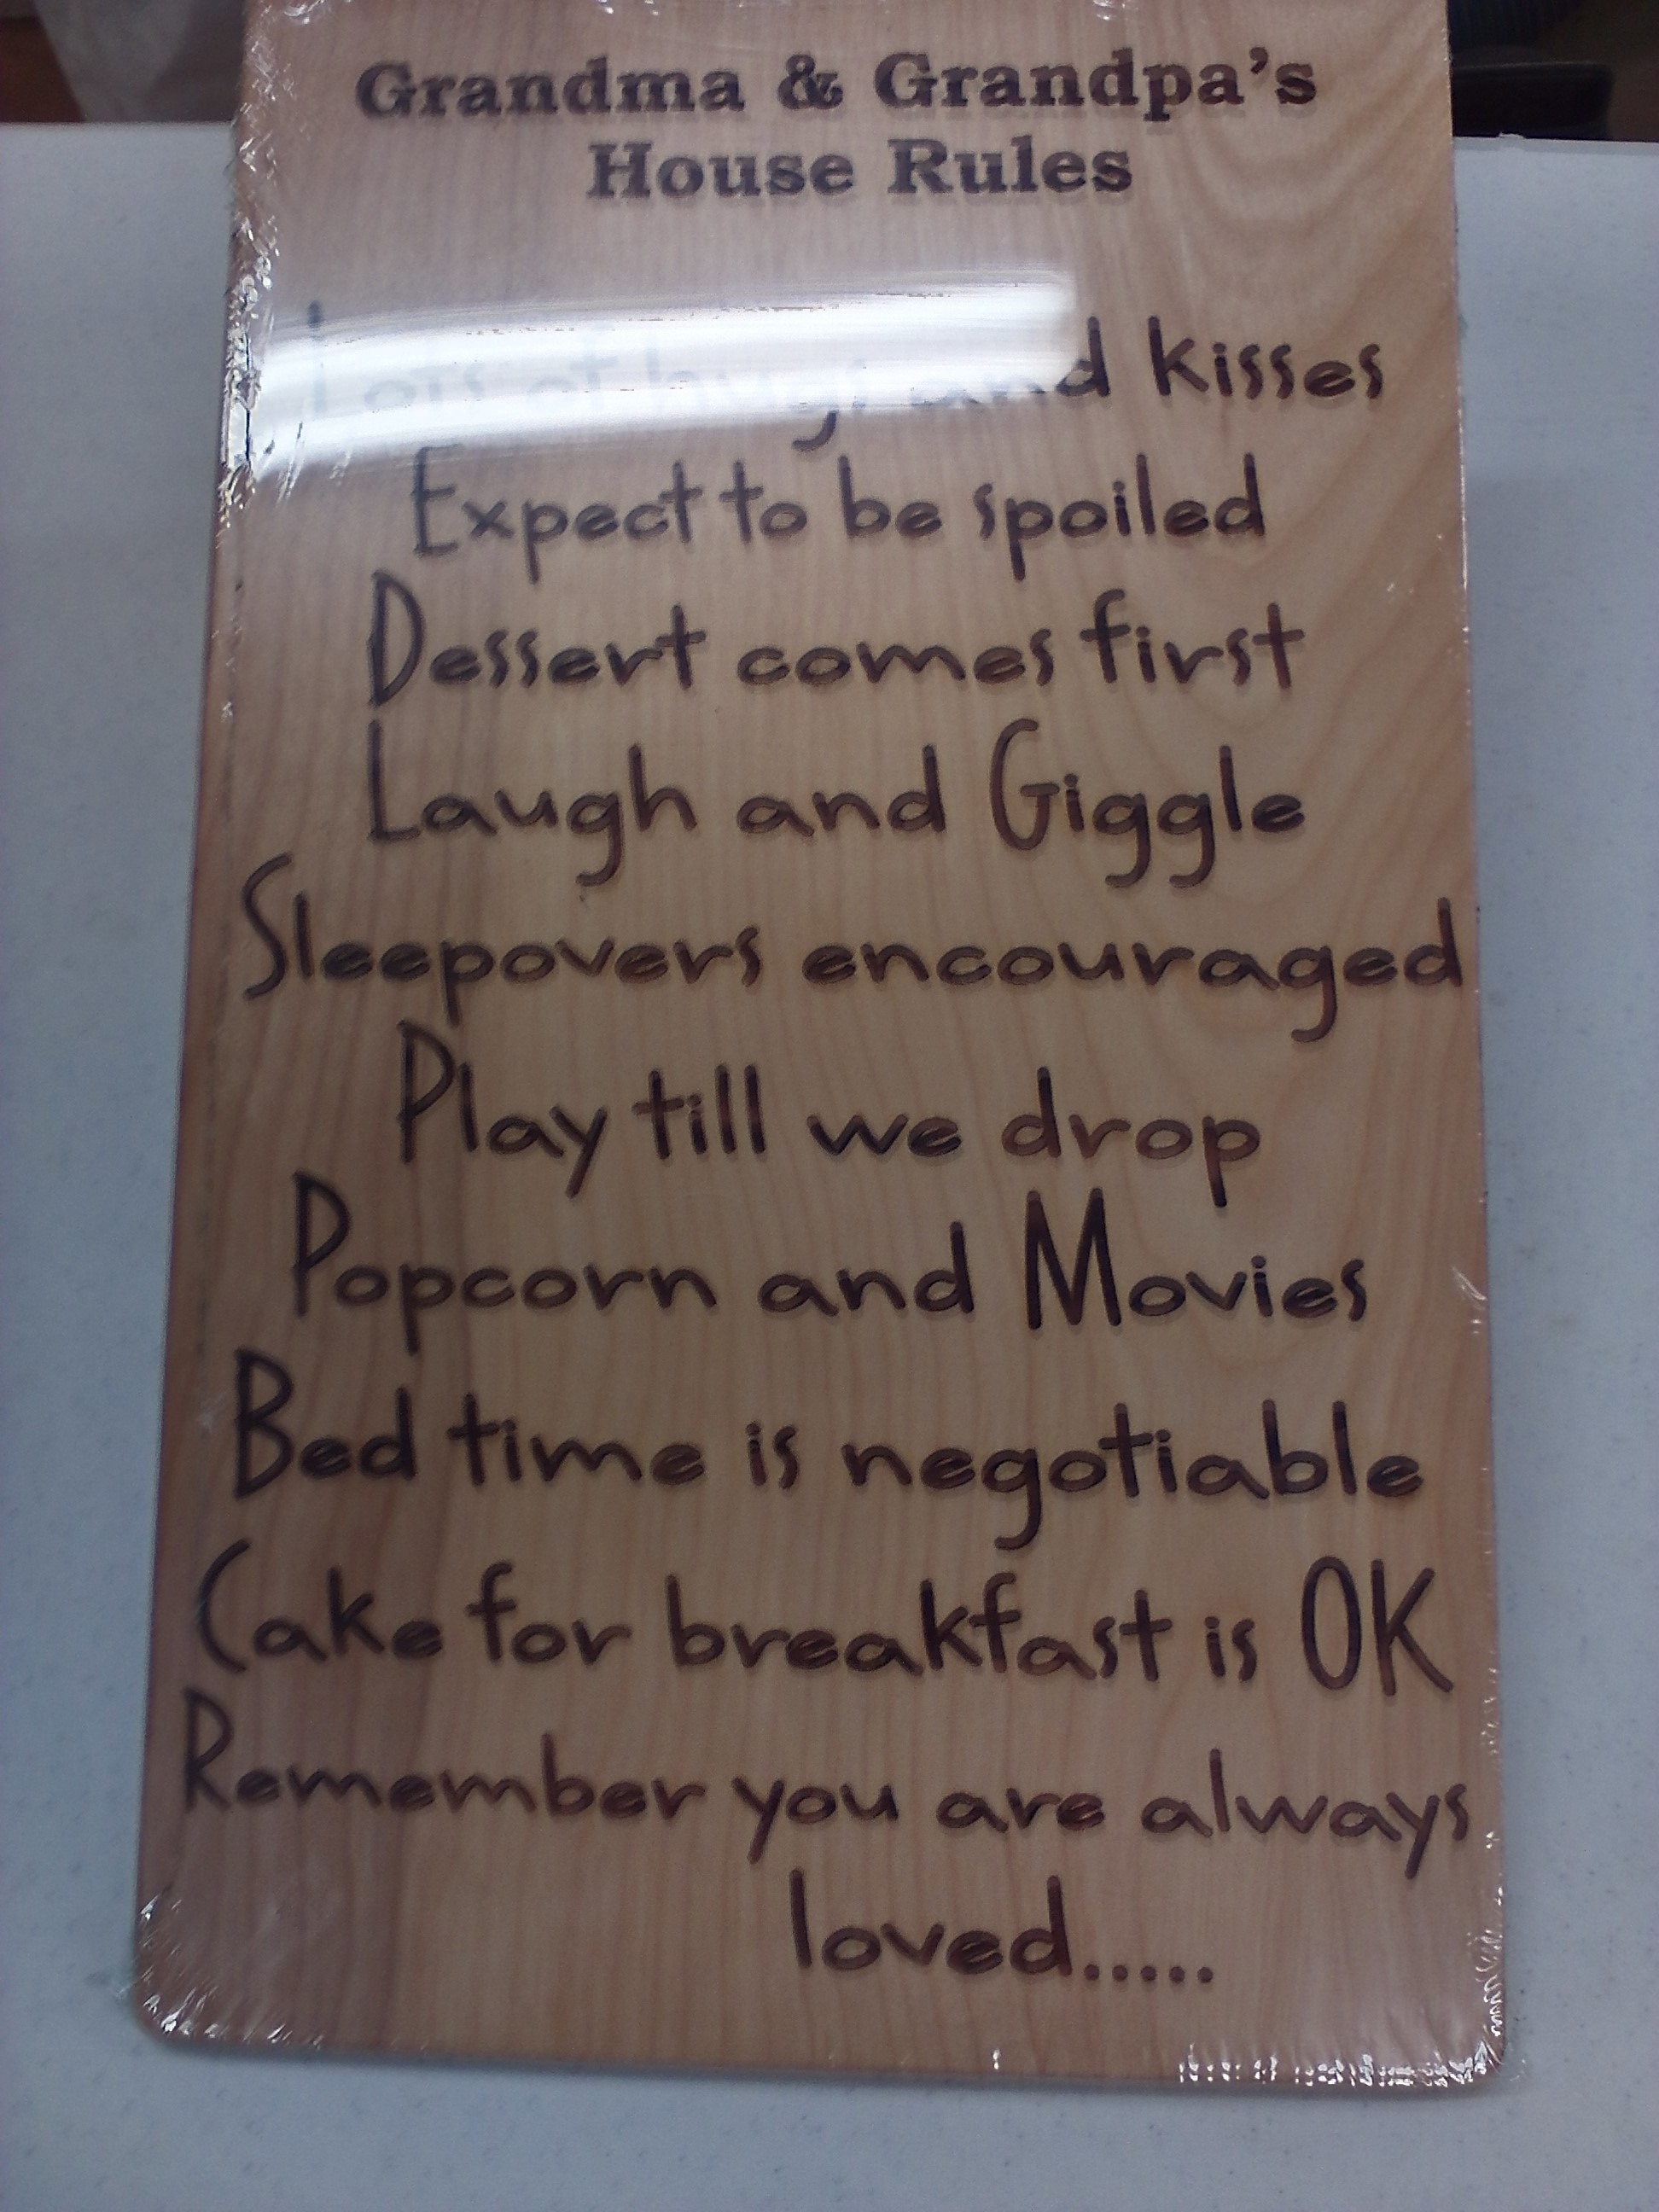 Grandma & Grandpa's
House Rules
Lots of hugs and kisses
Expect to be spoiled
Dessert comes first
Laugh and Giggle
Sleepovers encouraged
Play till we drop
Popcorn and Movies
Bed time is negotiable
Cake for breakfast is OK
Remember you are always
loved.....